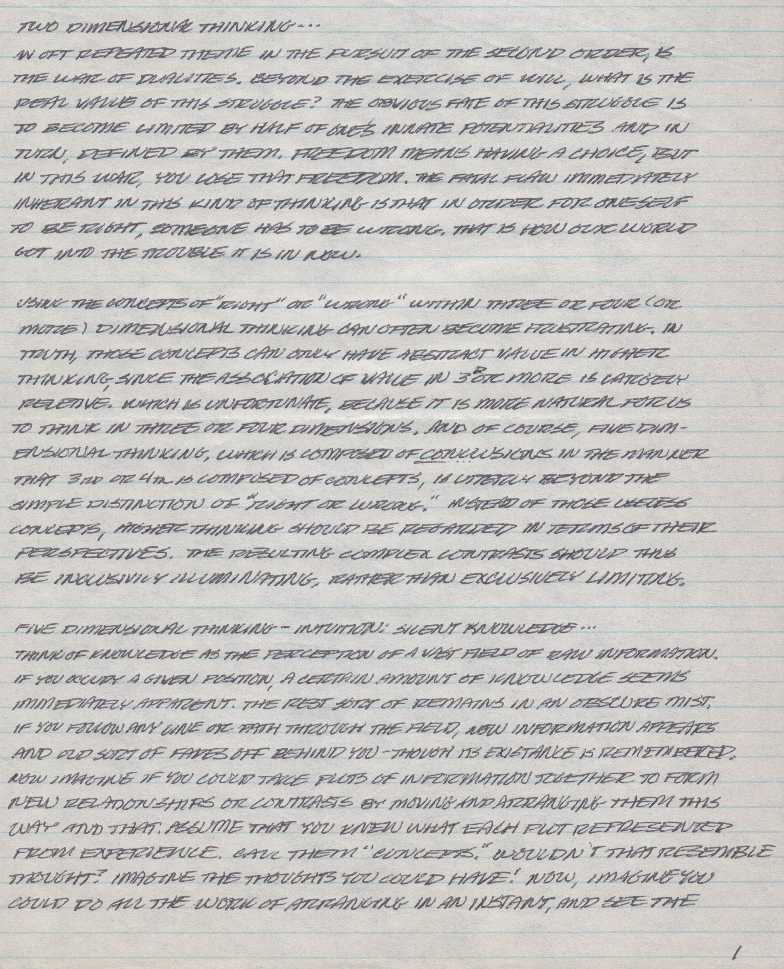 TWO DIMENSIONAL THINKING...
AN OFT REPEATED THEME IN THE PURSUIT OF THE SECOND ORDER, IS
THE WAR OF DUALITIES. BEYOND THE EXERCISE OF WILL, WHAT IS THE
REAL VALUE OF THIS STRUGGLE? THE OBVIOUS FATE OF THIS STRUGGLE IS
TO BECOME LIMITED BY HALF OF ONE'S INNATE POTENTIALITIES AND IN
TURN, DEFINED BY THEM. FREEDOM MEANS HAVING A CHOICE, BUT
IN THIS WAR, YOU LOSE THAT FREEDOM. THE FATAL FLAW IMMEDIATELY
INHERANT IN THIS KIND OF THINKING IS THAT IN ORDER FOR ONESELF
TO BE RIGHT, SOMEONE HAS TO BE WRONG. THAT IS HOW OUR WORLD
GOT INTO THE TROUBLE IT IS IN NOW.
USING THE CONCEPTS OF "RIGHT" OR "WRONG" WITHIN THREE OR FOUR (OR
MORE) DIMENSIONAL THINKING CAN OFTEN BECOME FRUSTRATING. IN
TRUTH, THOSE CONCEPTS CAN ONLY HAVE ABSTRACT VALUE IN HIGHER
THINKING, SINCE THE ASSOCIATION OF VALUE IN 3D OR MORE IS LARGELY
RELETIVE. WHICH IS UNFORTUNATE, BECAUSE IT IS MORE NATURAL FOR US
TO THINK IN THREE OR FOUR DIMENSIONS. AND OF COURSE, FIVE DIM-
ENSIONAL THINKING, WHICH IS COMPOSED OF CONCLUSIONS IN THE MANNER
THAT 3RD OR 4TH IS COMPOSED OF CONCEPTS, IS UTTERLY BEYOND THE
SIMPLE DISTINCTION OF "RIGHT OR WRONG." INSTEAD OF THOSE USELESS
CONCEPTS, HIGHER THINKING SHOULD BE REGARDED IN TERMS OF THEIR
PERSPECTIVES. THE RESULTING COMPLEX CONTRASTS SHOULD THUS
BE INCLUSIVILY ILLUMINATING, RATHER THAN EXCLUSIVELY LIMITING.
FIVE DIMENSIONAL THINKING - INTUITION: SILENT KNOWLEDGE...
THINK OF KNOWLEDGE AS THE PERCEPTION OF A VAST FIELD OF RAW INFORMATION.
IF YOU OCCUPY A GIVEN POSITION, A CERTAIN AMOUNT OF KNOWLEDGE SEEMS
IMMEDIATELY APPARENT. THE REST SORT OF REMAINS IN AN OBSCURE MIST.
IF YOU FOLLOW ANY LINE OR PATH THROUGH THE FIELD, NEW INFORMATION APPEARS
AND OLD SORT OF FADES OFF BEHIND YOU - THOUGH ITS EXISTANCE IS REMEMBERED.
NOW IMAGINE IF YOU COULD TAKE PLOTS OF INFORMATION TOGETHER TO FORM
NEW RELATIONSHIPS OR CONTRASTS BY MOVING AND ARRANGING THEM THIS
WAY AND THAT. ASSUME THAT YOU KNEW WHAT EACH PLOT REPRESENTED
FROM EXPERIENCE. CALL THEM "CONCEPTS." WOULDN'T THAT RESEMBLE
THOUGHT? IMAGINE THE THOUGHTS YOU COULD HAVE! NOW, IMAGINE YOU
COULD DO ALL THE WORK OF ARRANGING IN AN INSTANT, AND SEE THE
1